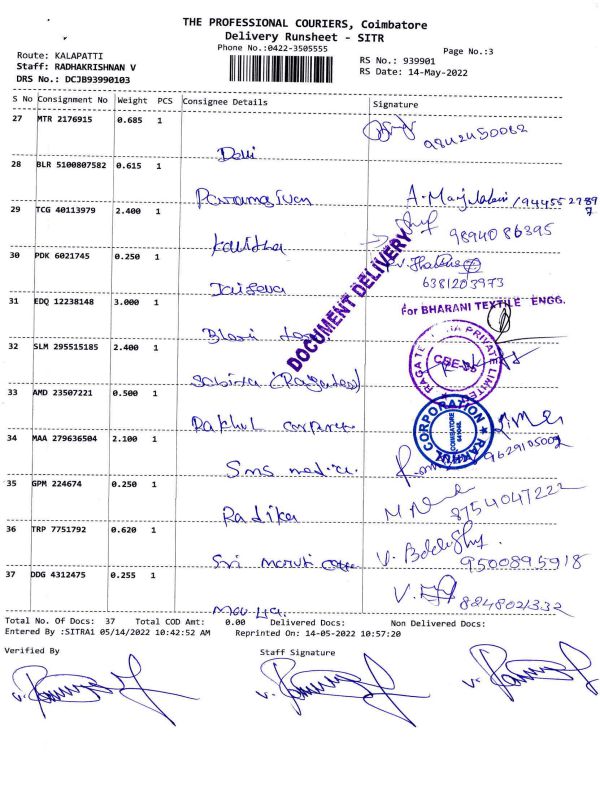 THE PROFESSIONAL COURIERS, Coimbatore
Delivery Runsheet - SITR
Phone No.:0422-3505555
Page No.:3
Route: KALAPATTI
Staff: RADHAKRISHNAN V
DRS No.: DCJB93990103
RS No.: 939901
RS Date: 14-May-2022
S No Consignment No Weight PCS Consignee Details Signature
27 MTR 2176915 0.685 1
9842450062
Devi
28 BLR 5100807582 0.615 1
Paramasivan
29 TCG 40113979 2.400 1
9894086395
Kavitha
30 PDK 6021745 0.250 1
6381203973
DOCUMENT DELIVERY
31 EDQ 12238148 3.000 1
For BHARANI TEXTILE ENGG.
32 SLM 295515185 2.400 1
PRIVATE LIMITED
CBE-35
33 AMD 23507221 0.500 1
RAKHUL CORPORATION
COIMBATORE
Rakhul
34 MAA 279636504 2.100 1
9629105002
Sms
35 GPM 224674 0.250 1
8754047222
Radika
36 TRP 7751792 0.620 1
9500895918
Sri maruti
37 DDG 4312475 0.255 1
8848021332
Total No. Of Docs: 37 Total COD Amt: 0.00 Delivered Docs: Non Delivered Docs:
Entered By :SITRA1 05/14/2022 10:42:52 AM Reprinted On: 14-05-2022 10:57:20
Verified By Staff Signature